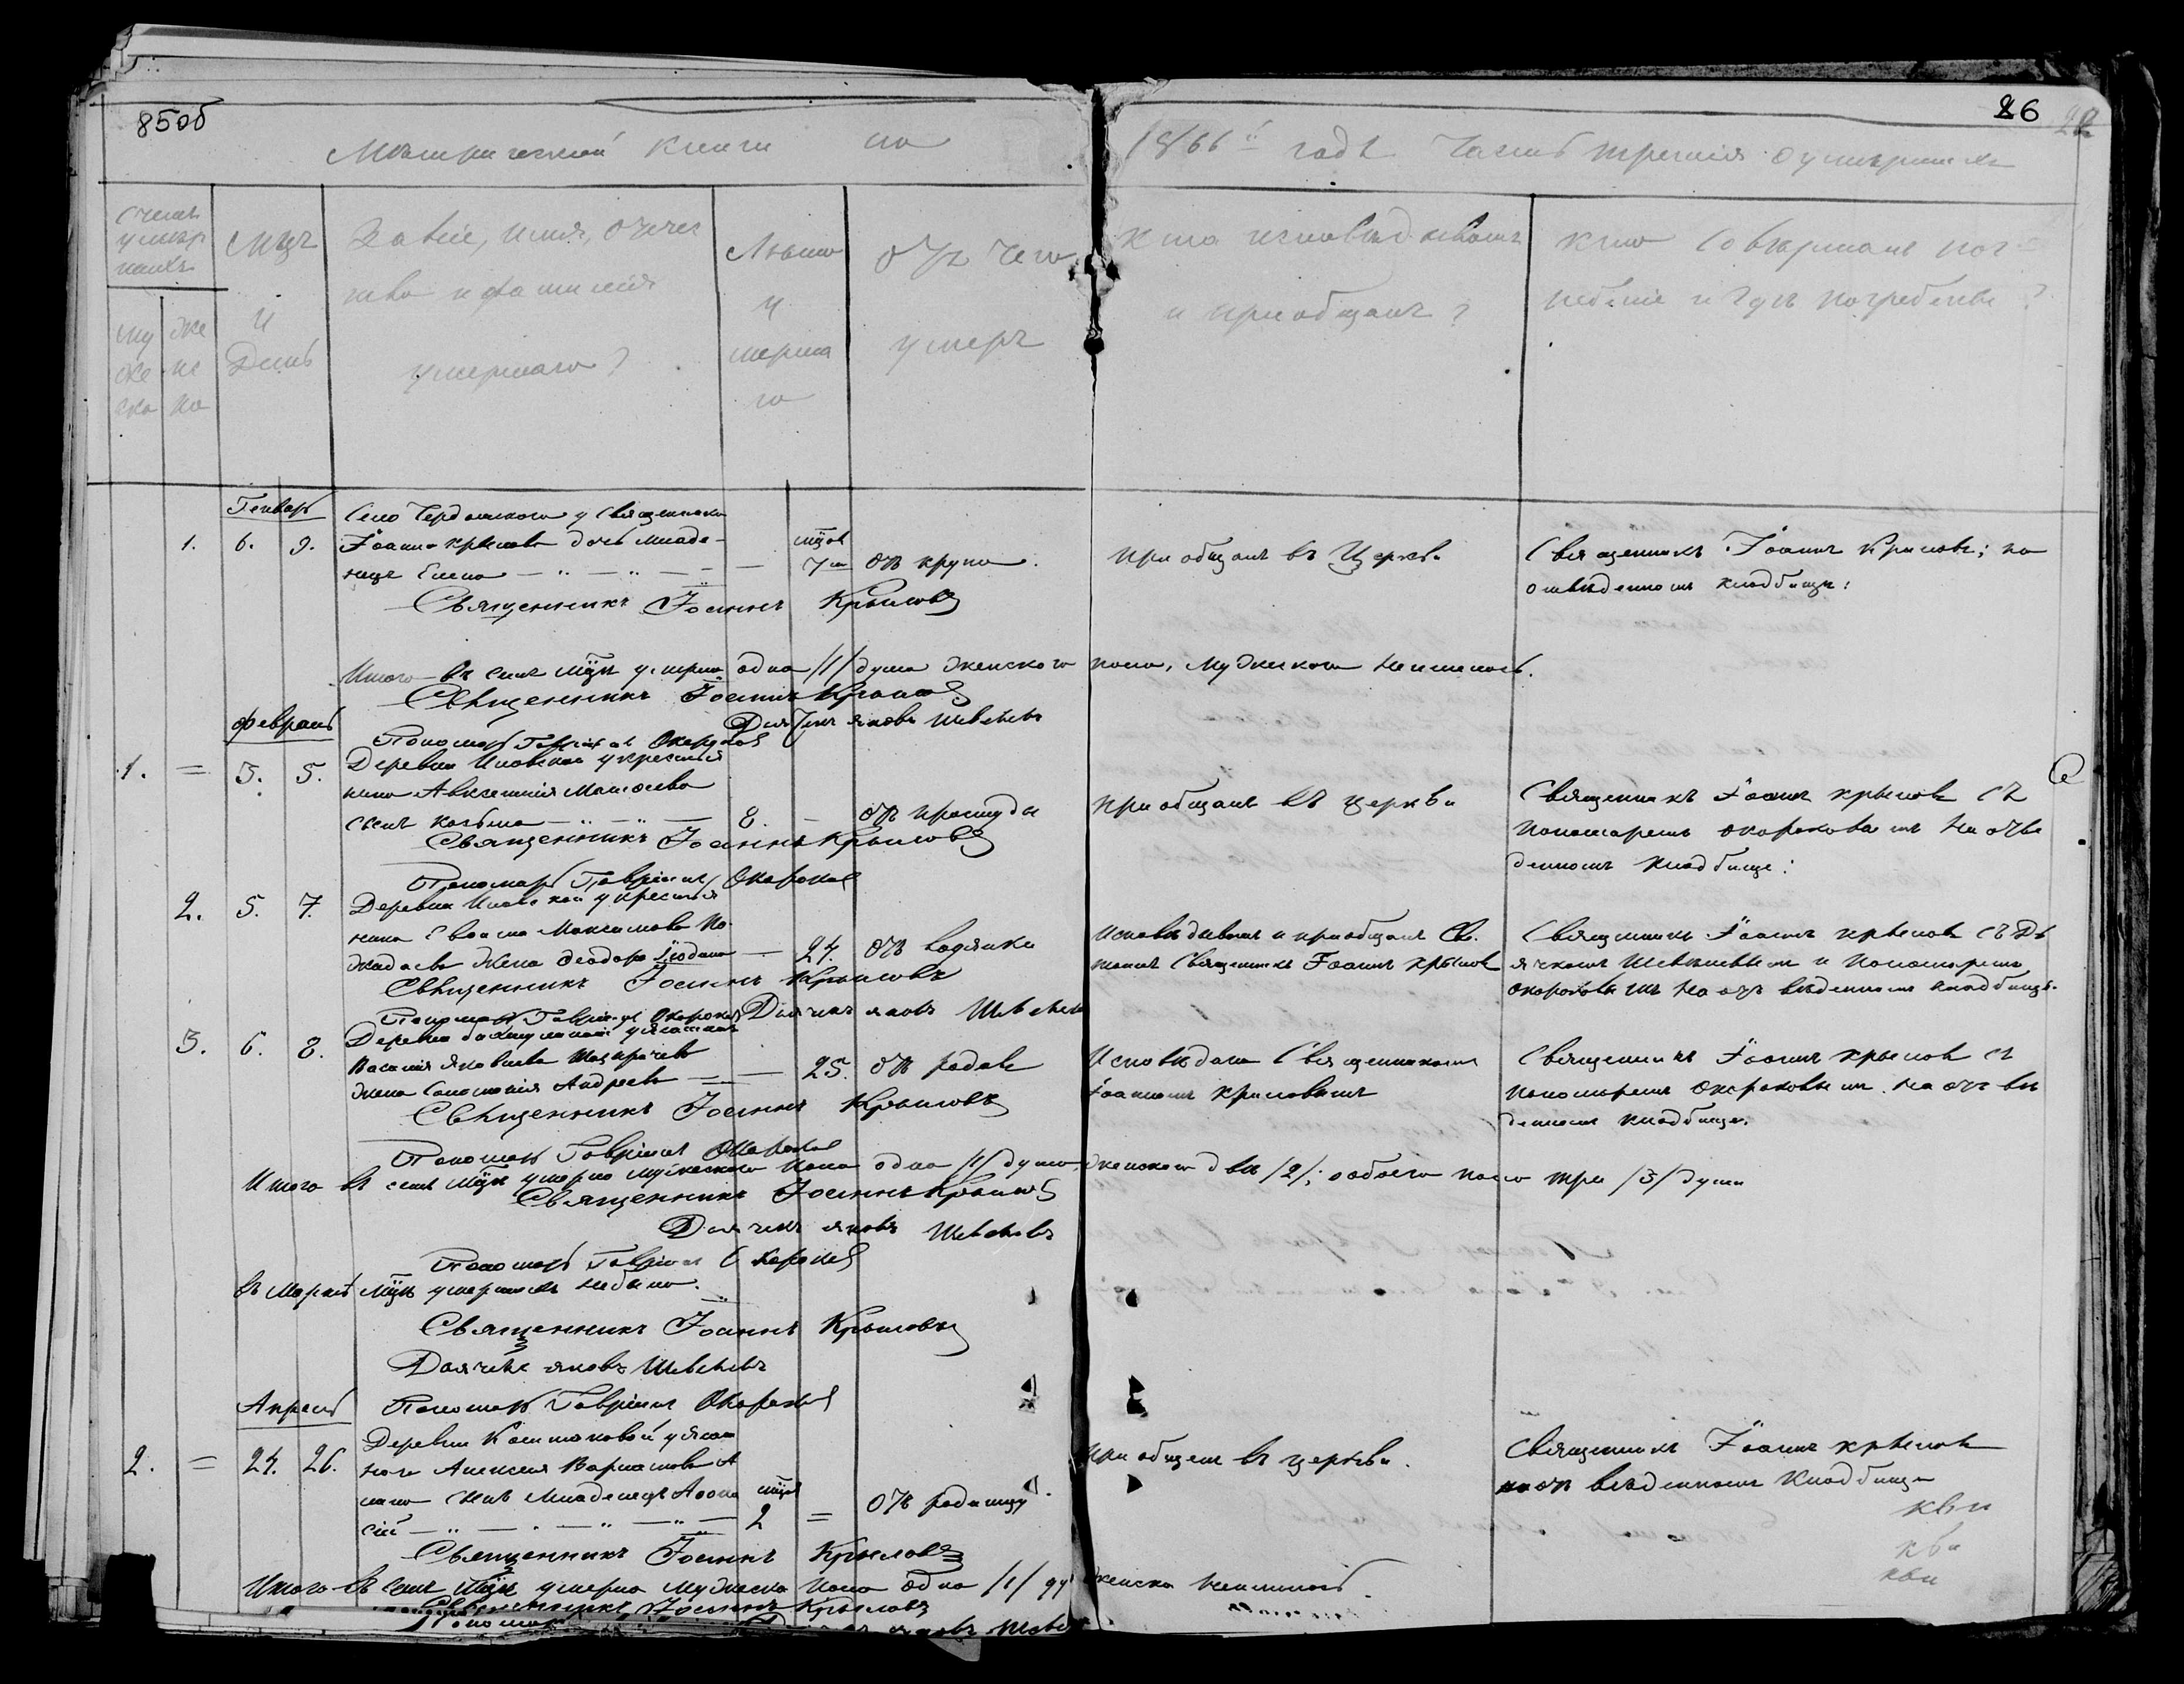 85об
26
Метрической книги на 1866й годъ Часть третія о умершихъ
Счетъ умерших
муже ско
жен ско
Мцъ и День
Званіе, имя, отчество и фамилія умершаго?
Лѣто умершаго
Отъ чего умеръ
Кто исповѣдывалъ и приобщалъ?
Кто совершалъ погребеніе и гдѣ погребены?
Генварь
Село у Священника
1. 6. 9. Іоанна Крылова дочь младе- мцов
нецъ Елена 7 отъ крупа.
приобщалъ въ Церкви
Священникъ Іоаннъ Крыловъ; на
отведенномъ кладбищѣ:
Священникъ Іоаннъ Крыловъ
Итого въ семъ мцѣ умерло одна /1/ душа женского пола, мужескаго неимелось.
Священникъ Іоаннъ Крыловъ
Дьячекъ Яковъ
Февраль
Пономарь Гавріилъ Окороков
Деревни у крестья
1. = 3. 5. нина Авксентія
сынъ Козьма 8. - отъ простуды
приобщалъ въ церкви
Священникъ Іоаннъ Крыловъ съ
пономаремъ Окороковымъ на отве
денномъ кладбище:
Священникъ Іоаннъ Крыловъ
Пономарь Гавріилъ Окороков
Деревни у крестья
2. 5. 7. нина Максимова По
жена Феодора - 24. отъ водянки
Исповѣдывалъ и приобщалъ Св.
Священникъ Іоаннъ Крылов
Священникъ Іоаннъ Крылов съ Дь
ячкомъ и Пономаремъ
Окороковымъ на отъ веденномъ кладбищѣ.
Священникъ Іоаннъ Крыловъ
Пономарь Гавріилъ Окороков Дьячекъ Яковъ
Деревни
3. 6. 8. Василія Яковлева
жена Соломонія Андреева 25. отъ родовъ
Исповѣдана Священникомъ
Іоанномъ Крыловымъ
Священникъ Іоаннъ Крылов съ
пономаремъ Окороковымъ на отъ ве
денномъ кладбище.
Священникъ Іоаннъ Крыловъ
Пономарь Гавріилъ Окороков
Итого въ семъ мцѣ умерло мужескаго пола одна /1/ душа, женскаго двѣ /2/; а обоего пола три /3/ души
Священникъ Іоаннъ Крыловъ
Дьячекъ Яковъ
Пономарь Гавріилъ Окороков
въ Мартѣ мцѣ умершихъ небыло.
Священникъ Іоаннъ Крыловъ
Дьячекъ Яковъ
Апрель
Пономарь Гавріилъ Окороков
Деревни
2. = 24. 26. Алексея Варламова
сынъ младенецъ Афона мцов
сій 2 = отъ родимцу
приобщенъ въ церкви.
Священникъ Іоаннъ Крылов
на отъ веденномъ кладбище
Священникъ Іоаннъ Крыловъ
Итого въ семъ мцѣ умерло мужеска пола одна /1/ женска неимелось.
Священникъ Іоаннъ Крыловъ
Пономарь